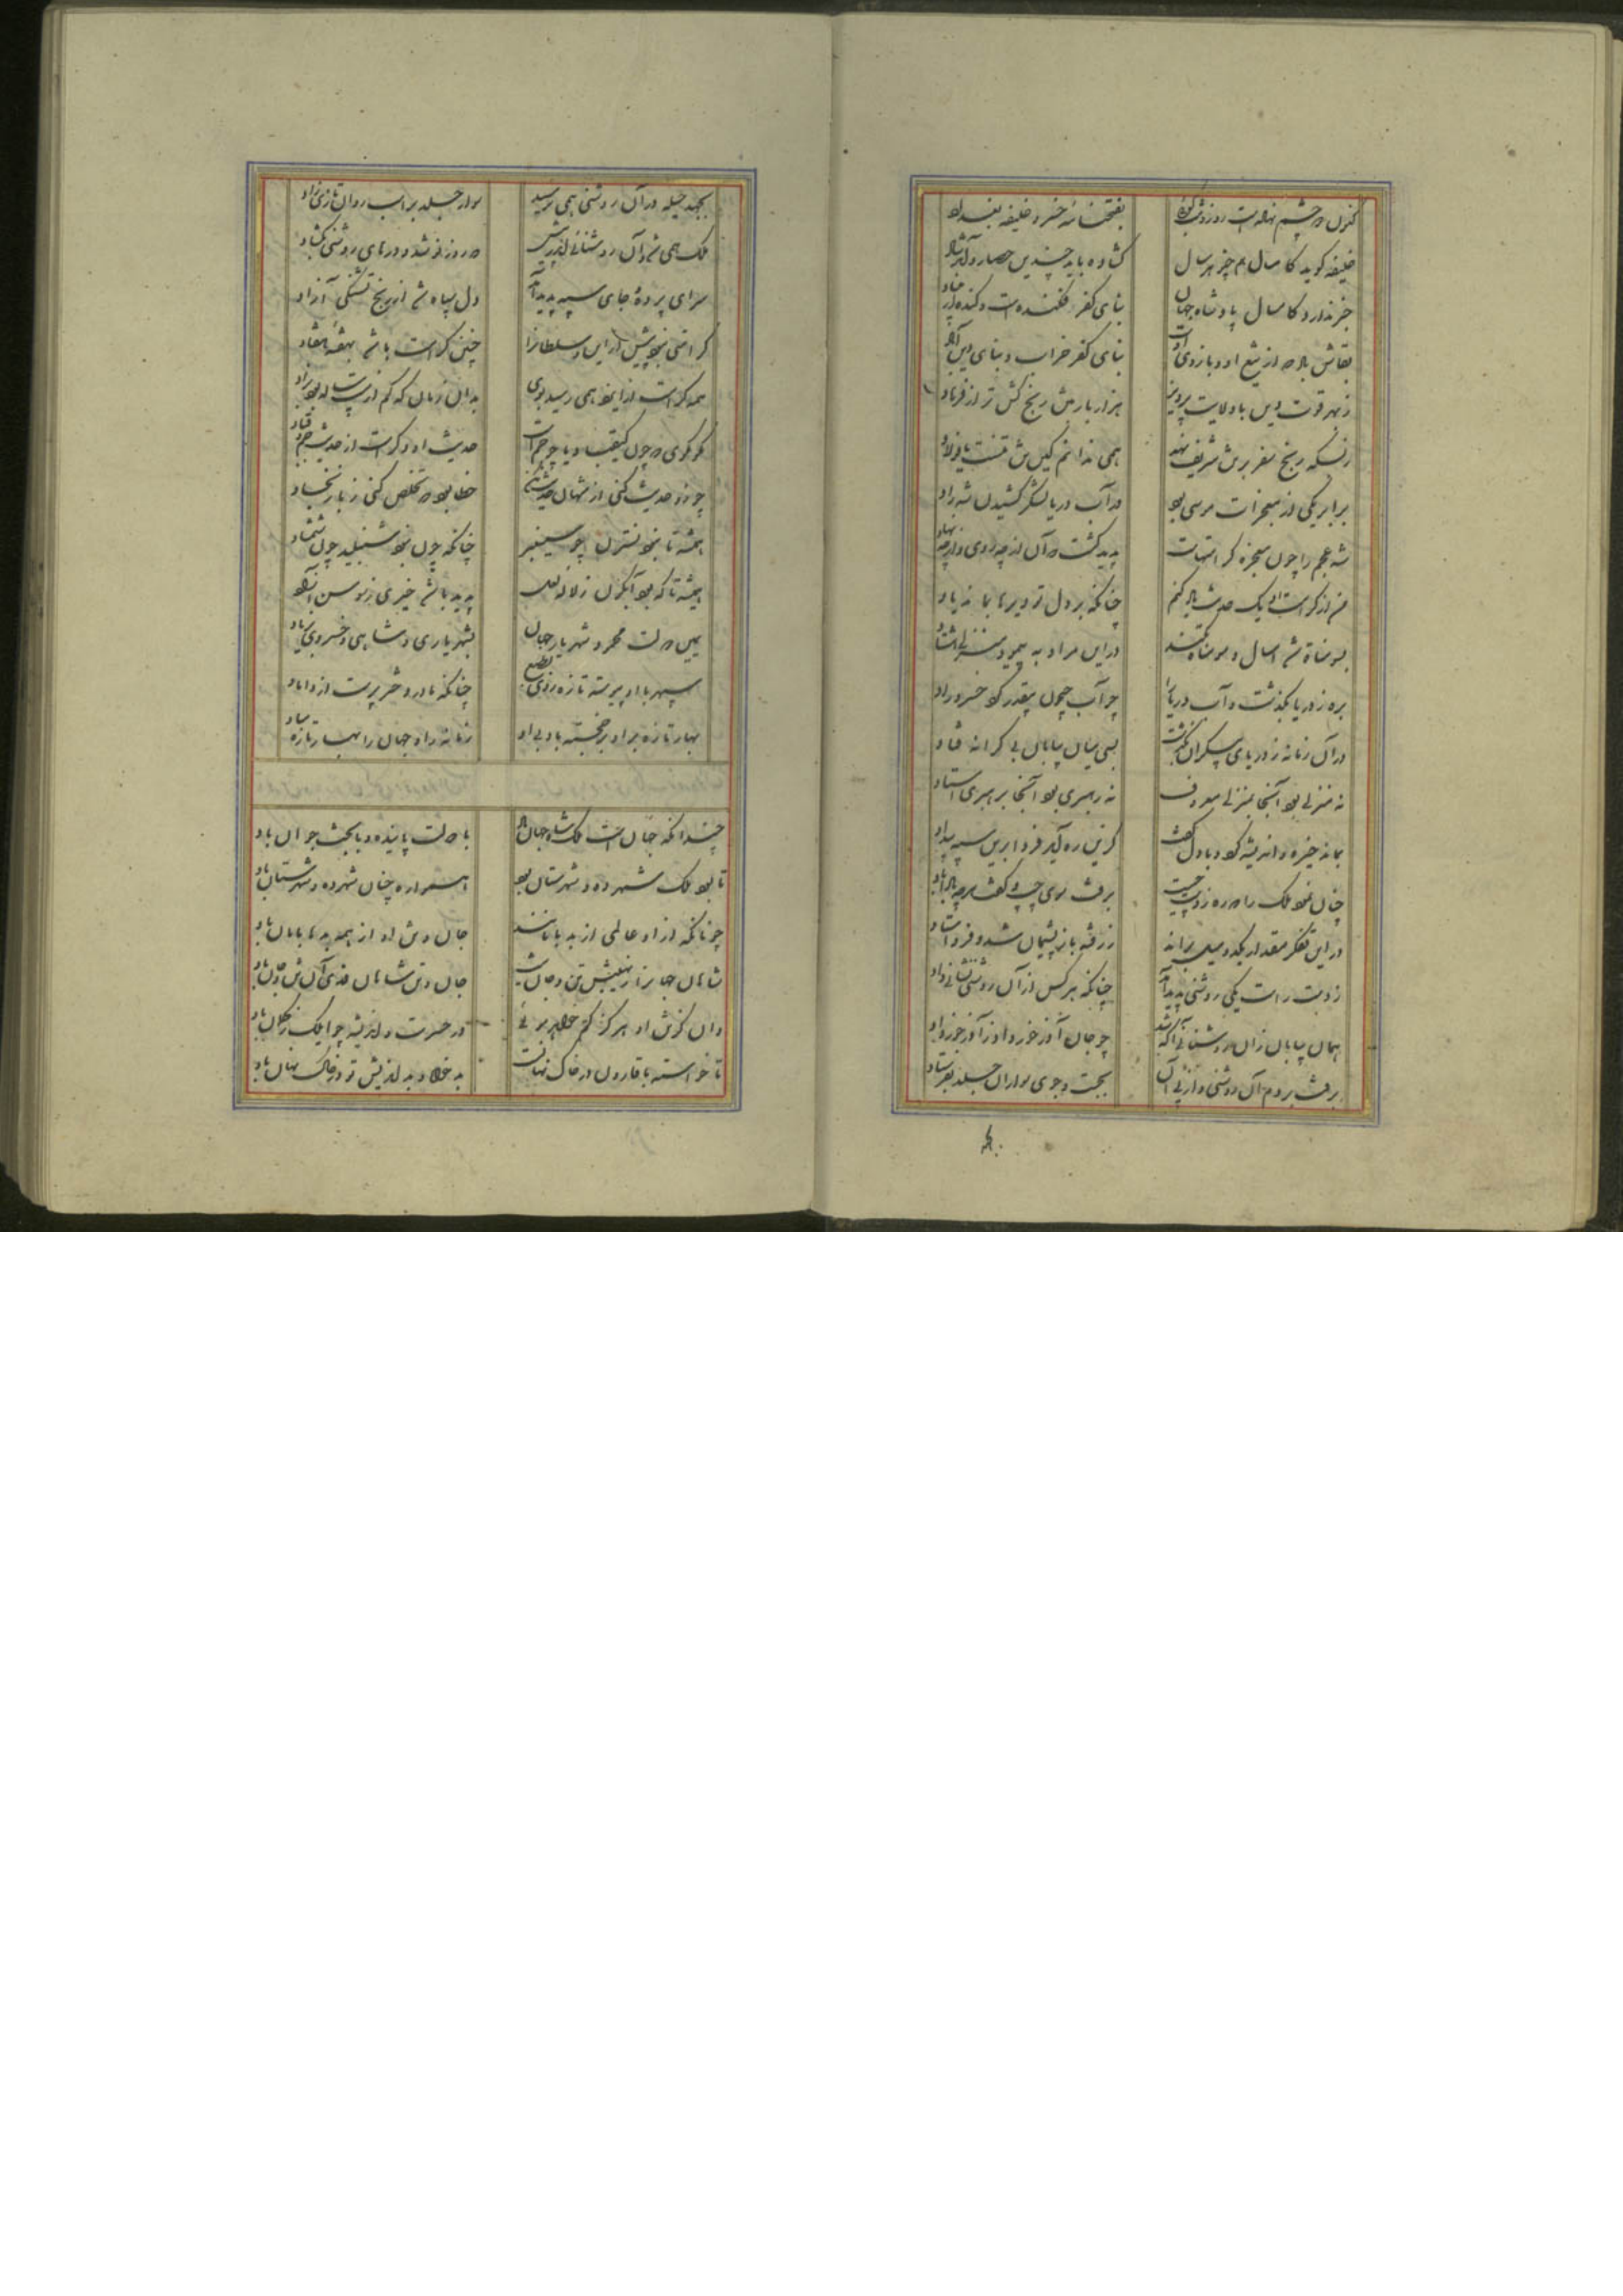 کنون دو چشم نهاده است روز و شب گویی
بفتحنامه خسرو خلیفه بغداد
خلیفه گوید کامسال همچو هر سال
گشاده باید چندین حصار و آمد شاد
خبر ندارد کامسال پادشاه جهان
بنای کفر فکنده است و کنده از بنیاد
بقاش باد که از تیغ او و بازوی اوست
بنای کفر خراب و بنای دین آباد
ز بهر قوت دین با ولایت پرویز
هزار بار تنش رنج کش تر از فرهاد
ز بسکه رنج سفر بر تن شریف نهد
همی ندانم کان تن تنست یا پولاد
برابر یکی از معجزات موسی بود
در آب دریا لشکر کشیدن شه راد
شه عجم را چون معجزه کراماتست
پدید گشت که آن از چه روی و از چه نهاد
من از کرامت او یک حدیث یاد کنم
چنانکه بر دل تو دیرها بماند یاد
بسومناة شد امسال و سومناة بکند
در این مراد بپیمود منزلی هشتاد
بره ز دریا بگذشت و آب دریا را
چو آب جیحون بیقدر کرد خسرو راد
در آن زمانه ز دریای بیکران بگذشت
بسی میان بیابان بی کرانه فتاد
نه منزلی بود آنجا بمنزلی معروف
نه رهبری بود آنجا برهبری استاد
بماند خیره و اندیشه کرد و با دل گفت
کزین ره آید فردا برین سپه بیداد
چنان نمود ملک را که ره ز دست چپست
برفت سوی چپ و گفت هرچه باداباد
در این تفکر مقدار یک دو میل براند
ز رفته باز پشیمان شد و فرو استاد
ز دست راست یکی روشنی پدید آمد
چنانکه هر کس از آن روشنی نشانی داد
همان بیابان زان روشنائی آگه شد
چو جان آذر خرداد ز آذر خرداد
برفت بر دم آن روشنی و از پی آن
بجست و جوی سواران جلد بفرستاد
بجهد و حیله در آن روشنی همی نرسید
سوار جلد بر اسب روان تازی زاد
ملک همی شد و آن روشنائی اندر پیش
که روز نو شد و درهای روشنی بگشاد
سرای پرده و جای سپه پدید آمد
دل سپاه شد از رنج تشنگی آزاد
کرامتی نبود بیش از این و سلطانرا
چنین کرامت باشد نهفته هفتاد
همه کرامت از ایزد همی رسید بوی
بدان زمان که کم از بیست ساله بود بزاد
حدیث او دگرست از حدیث جم و قباد
چو زو حدیث کنی از شهان حدیث مکن
خطا بود که تخلص کنی ز باز بخاد
همیشه تا نبود نسترن چو سیسنبر
چنانکه چون نبود شنبلید چون شمشاد
همیشه تا که بود آبگون ز لاله لعل
پدید باشد خیری ز سوسن آزاد
یمین دولت محمود شهریار جهان
بشهریاری و شاهی و خسروی بزیاد
سپهر با او پیوسته تازه روی و مطیع
چنانکه مادر دختر پرست از داماد
بهار تازه بر او بر خجسته باد بی او
زمانه را و جهان را بهار تازه مباد
چندانکه جهان است ملک شاه جهان باد
با دولت پاینده و با بخت جوان باد
تا بود ملک شهرده و شهرستان بود
همواره چنان شهرده و شهرستان باد
چونانکه از او عالمی از بد بامانند
جان و تن او از همه بدها بامان باد
شاهان جهانرا ز نهیبش تن و جان نیست
جان و تن شاهان فدی آن تن و جان باد
وان کز تن او هرگز گم خواهد بریی
در حسرت و اندیشه چو ایلک ز گلان باد
تا خواسته با قارون در خاک نهانست
بدخواه و بداندیش تو در خاک نهان باد